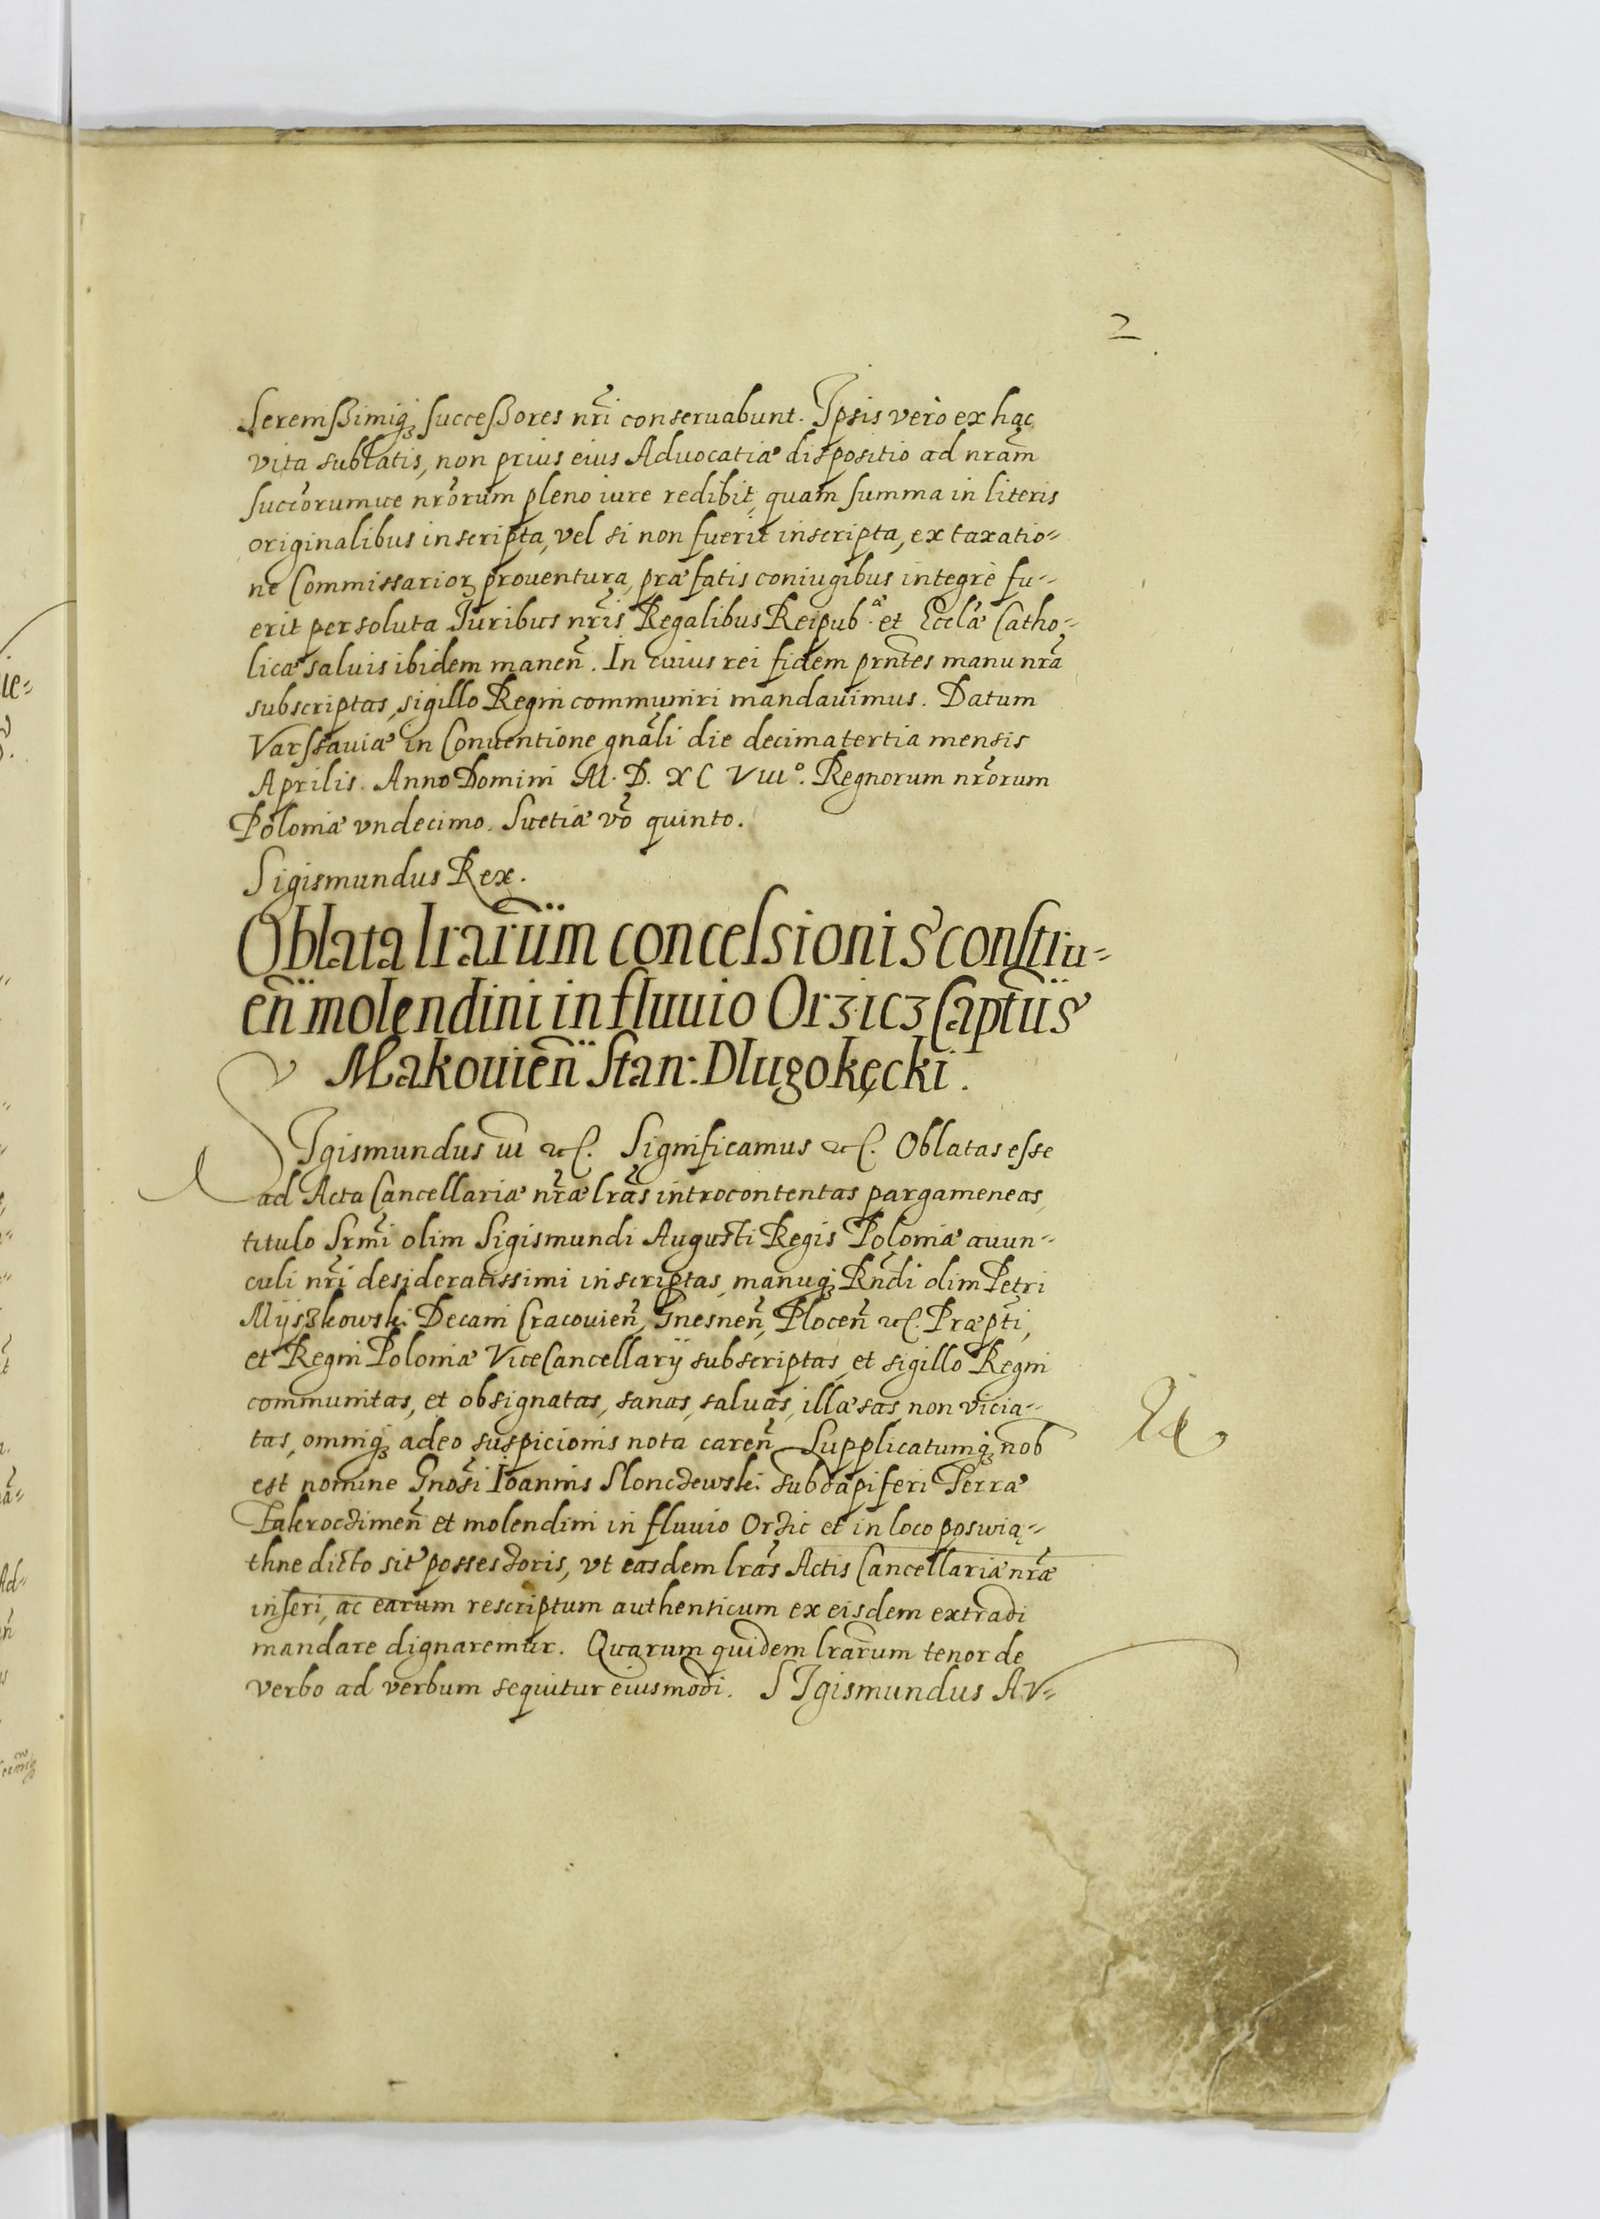 2
Serenissimiq₃ successores nr̃i conseruabunt. Ipsis verò ex hac
vita sublatis, non prius eius Aduocatiæ dispositio ad nram̃
succ̃orumue nr̃orum pleno iure redibit, quam summa in literis
originalibus inscripta, vel si non fuerit inscripta, ex taxatio-
ne Commissarioꝝ prouentura, præfatis coniugibus integrè fu-
erit persoluta Iuribus nr̃is Regalibus Reipub. et Eccl̃æ Catho-
licæ saluis ibidem maneñ. In cuius rei fidem prñtes manu nrã
subscriptas, sigillo Regni communiri mandauimus. Datum
Varssauiæ in Conuentione gnãli die decimatertia mensis
Aprilis. Anno Domini M. D. XC VIIIº. Regnorum nr̃orum
Poloniæ vndecimo. Suetiæ vo͂ quinto.
Sigismundus Rex.
Oblata lrarum̃ concessionis constru-
eñ molendini in fluuio Orzicz Captũs
Makouieñ Stan: Dlugokęcki.
SIgismundus III etc. Significamus etc. Oblatas esse
ad Acta Cancellariæ nr̃æ lrãs introcontentas pargameneas,
titulo Srm̃i olim Sigismundi Augusti Regis Poloniæ auun-
culi nr̃i desideratissimi inscriptas, manuq₃ Rñdi olim Petri
Myszkowski Decani Cracouieñ, Gnesneñ, Ploceñ etc. Præpt̃i,
et Regni Poloniæ ViceCancellarij subscriptas, et sigillo Regni
communitas, et obsignatas, sanas, saluas, illæsas, non vicia-
tas, omniq₃ adeo suspicionis nota careñ. Supplicatumq₃ nob
est nomine Gnõsi Ioannis Slonczewski subdapiferi Terræ
Zakroczimeñ et molendini in fluuio Orzic et in loco poswią-
thne dicto siti possessoris, vt easdem lrãs Actis Cancellariæ nr̃æ
inseri, ac earum rescriptum authenticum ex eisdem extradi
mandare dignaremur. Quarum quidem lrãrum tenor de
verbo ad verbum sequitur eiusmodi. SIgismundus AV-